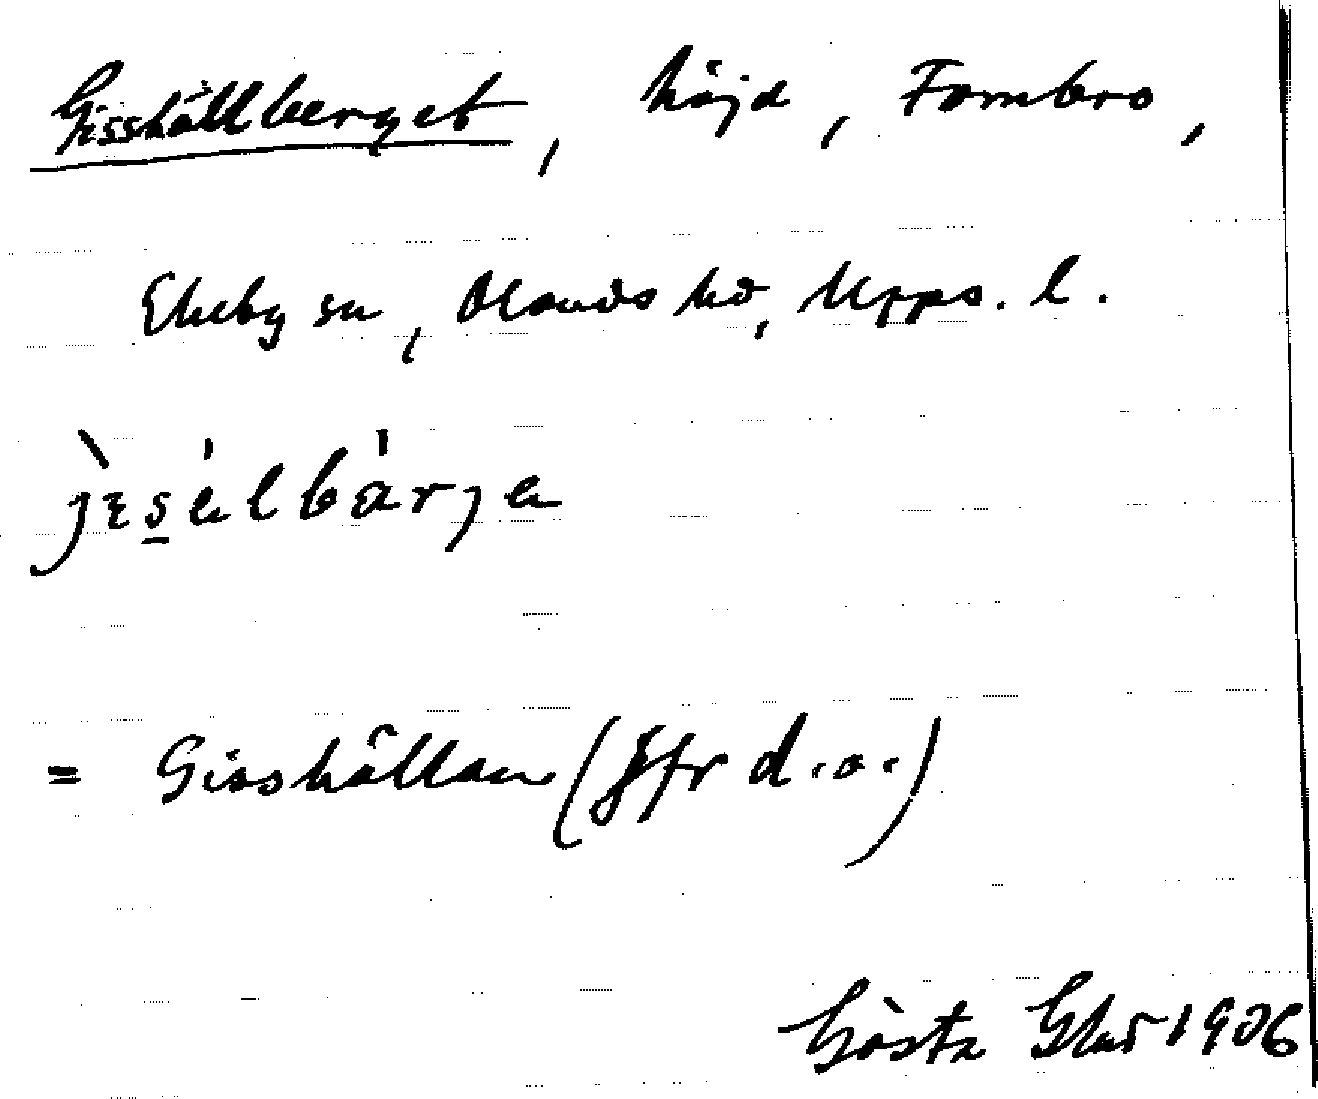 Gisshällberget, höjd, Fombro,
Ekeby sn, Olands hd, Upps. l.
= Gisshällan (Jfr d.o.)
Gösta 1906